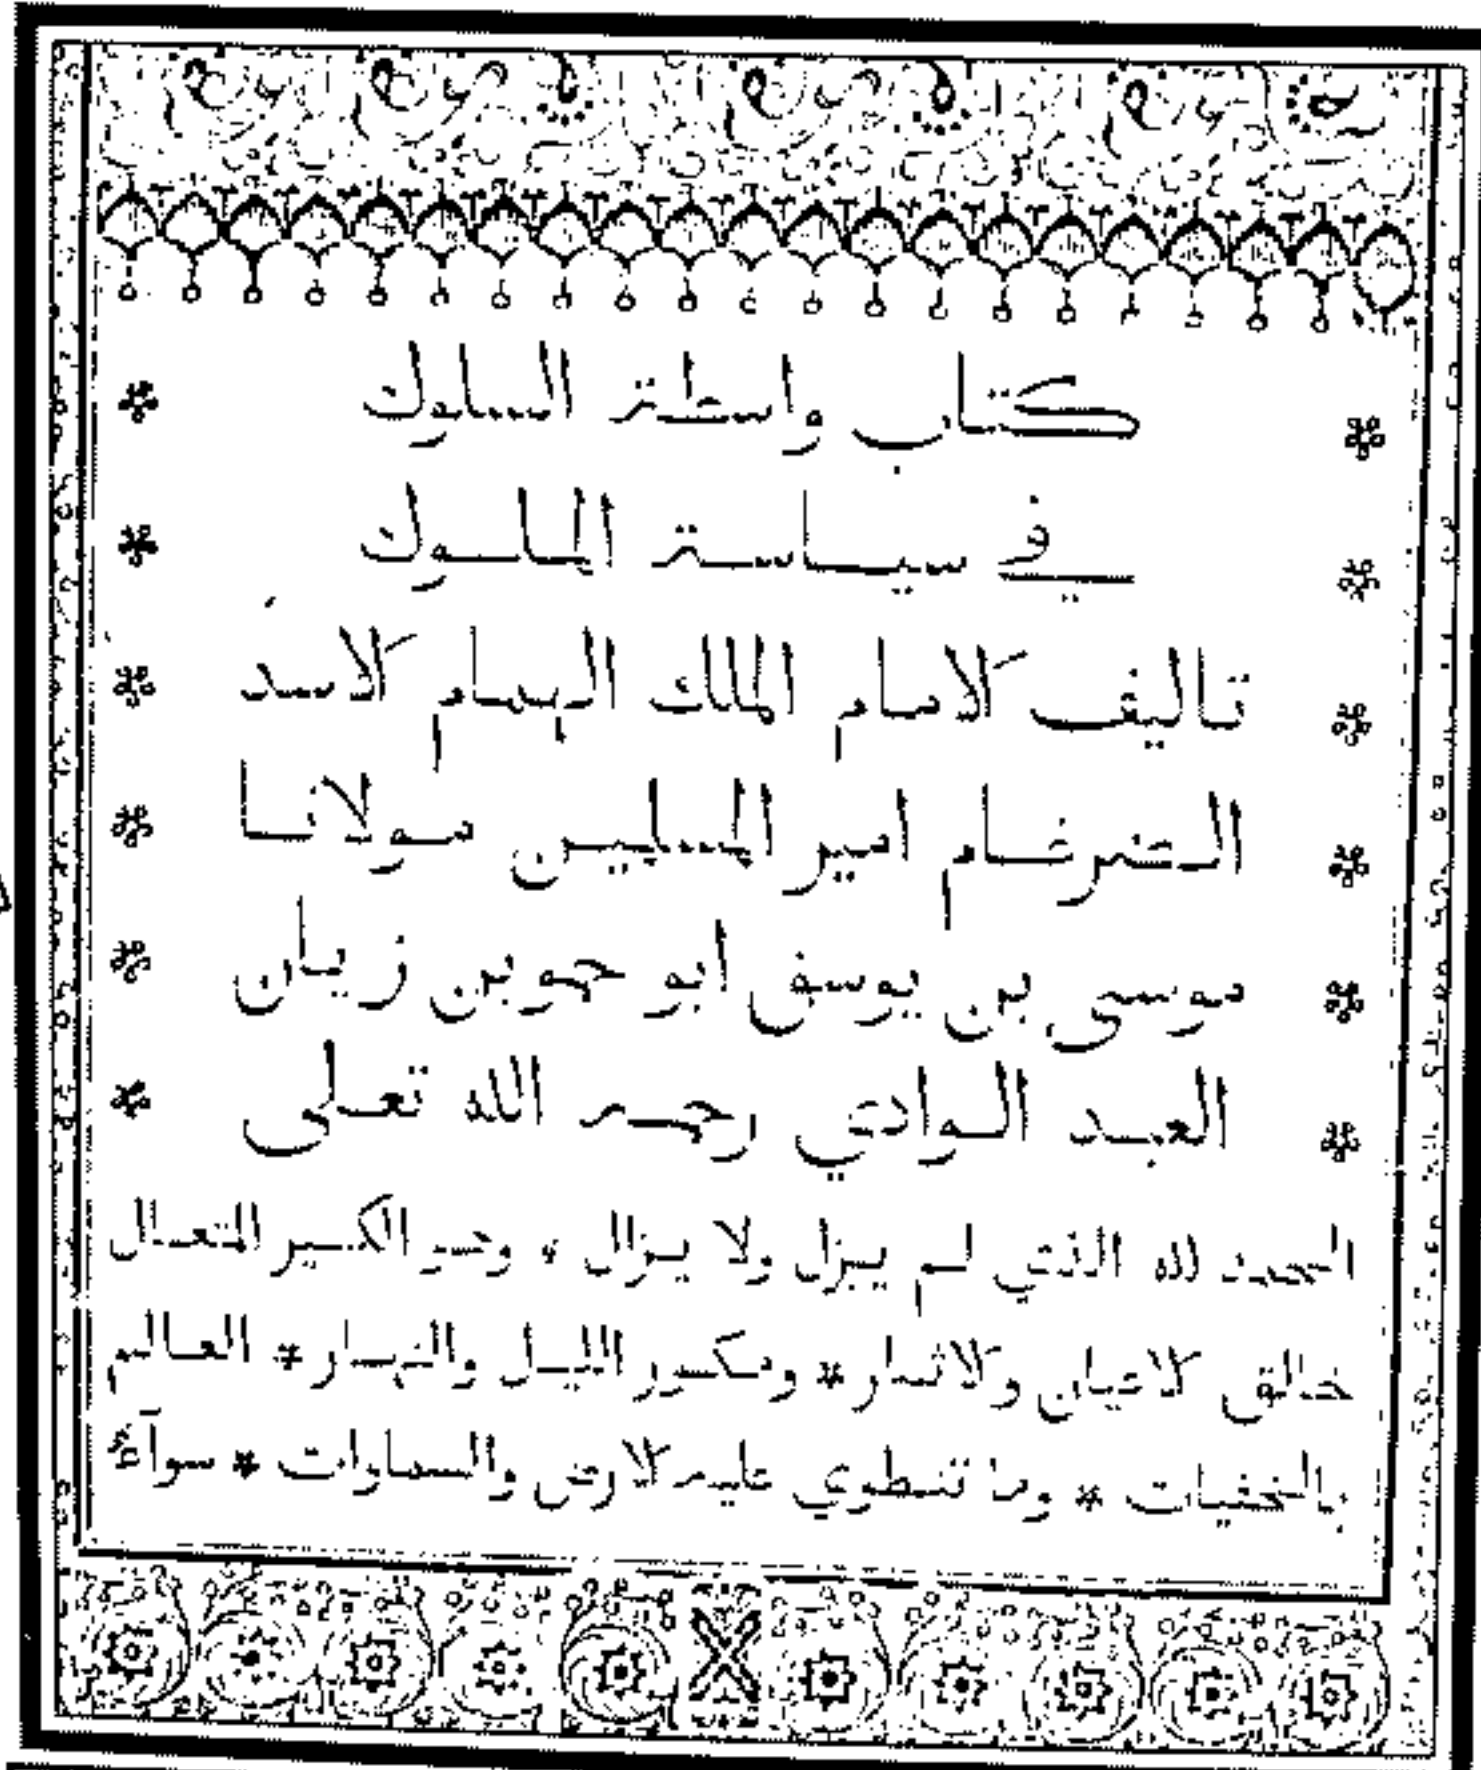 كتاب واسطة السلوك
في سياسة الملوك
تاليف الامام الملك الهمام الاسد
الضرغام امير المسلمين مولانا
موسى بن يوسف ابو حمو بن زيان
العبد الوادي رحمه الله تعالى
الحمد لله الذي لم يزل ولا يزال ، وهو الكبير المتعال
خالق الاعيان والاثار * ومكور الليل والنهار * العالم
بالخفيات * وما تنطوي عليه الارض والسماوات * سوآء